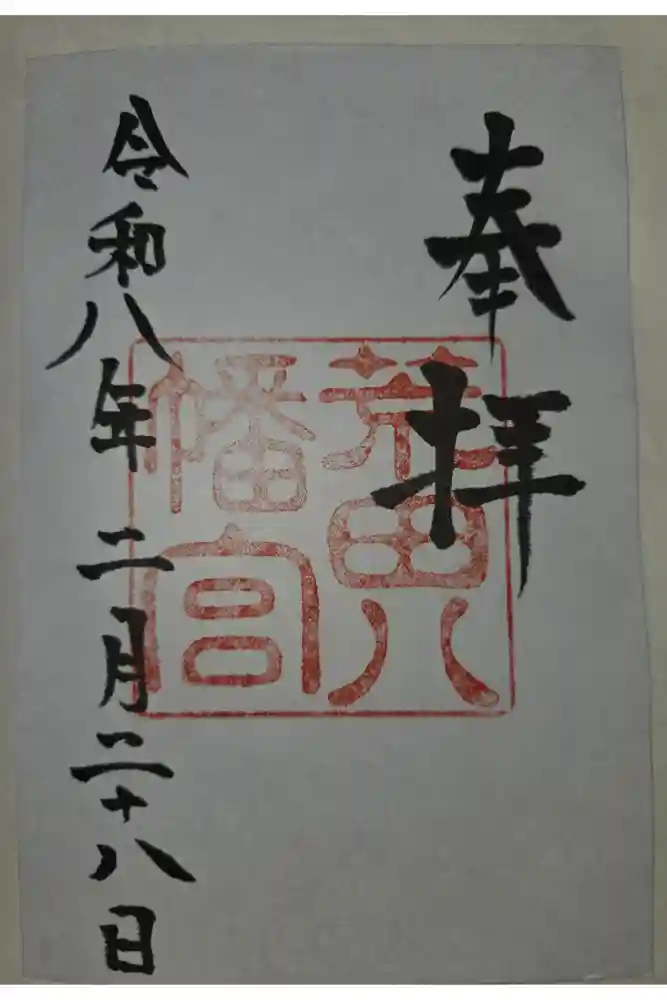 奉拝
田八
幡宮
令和八年二月二十八日